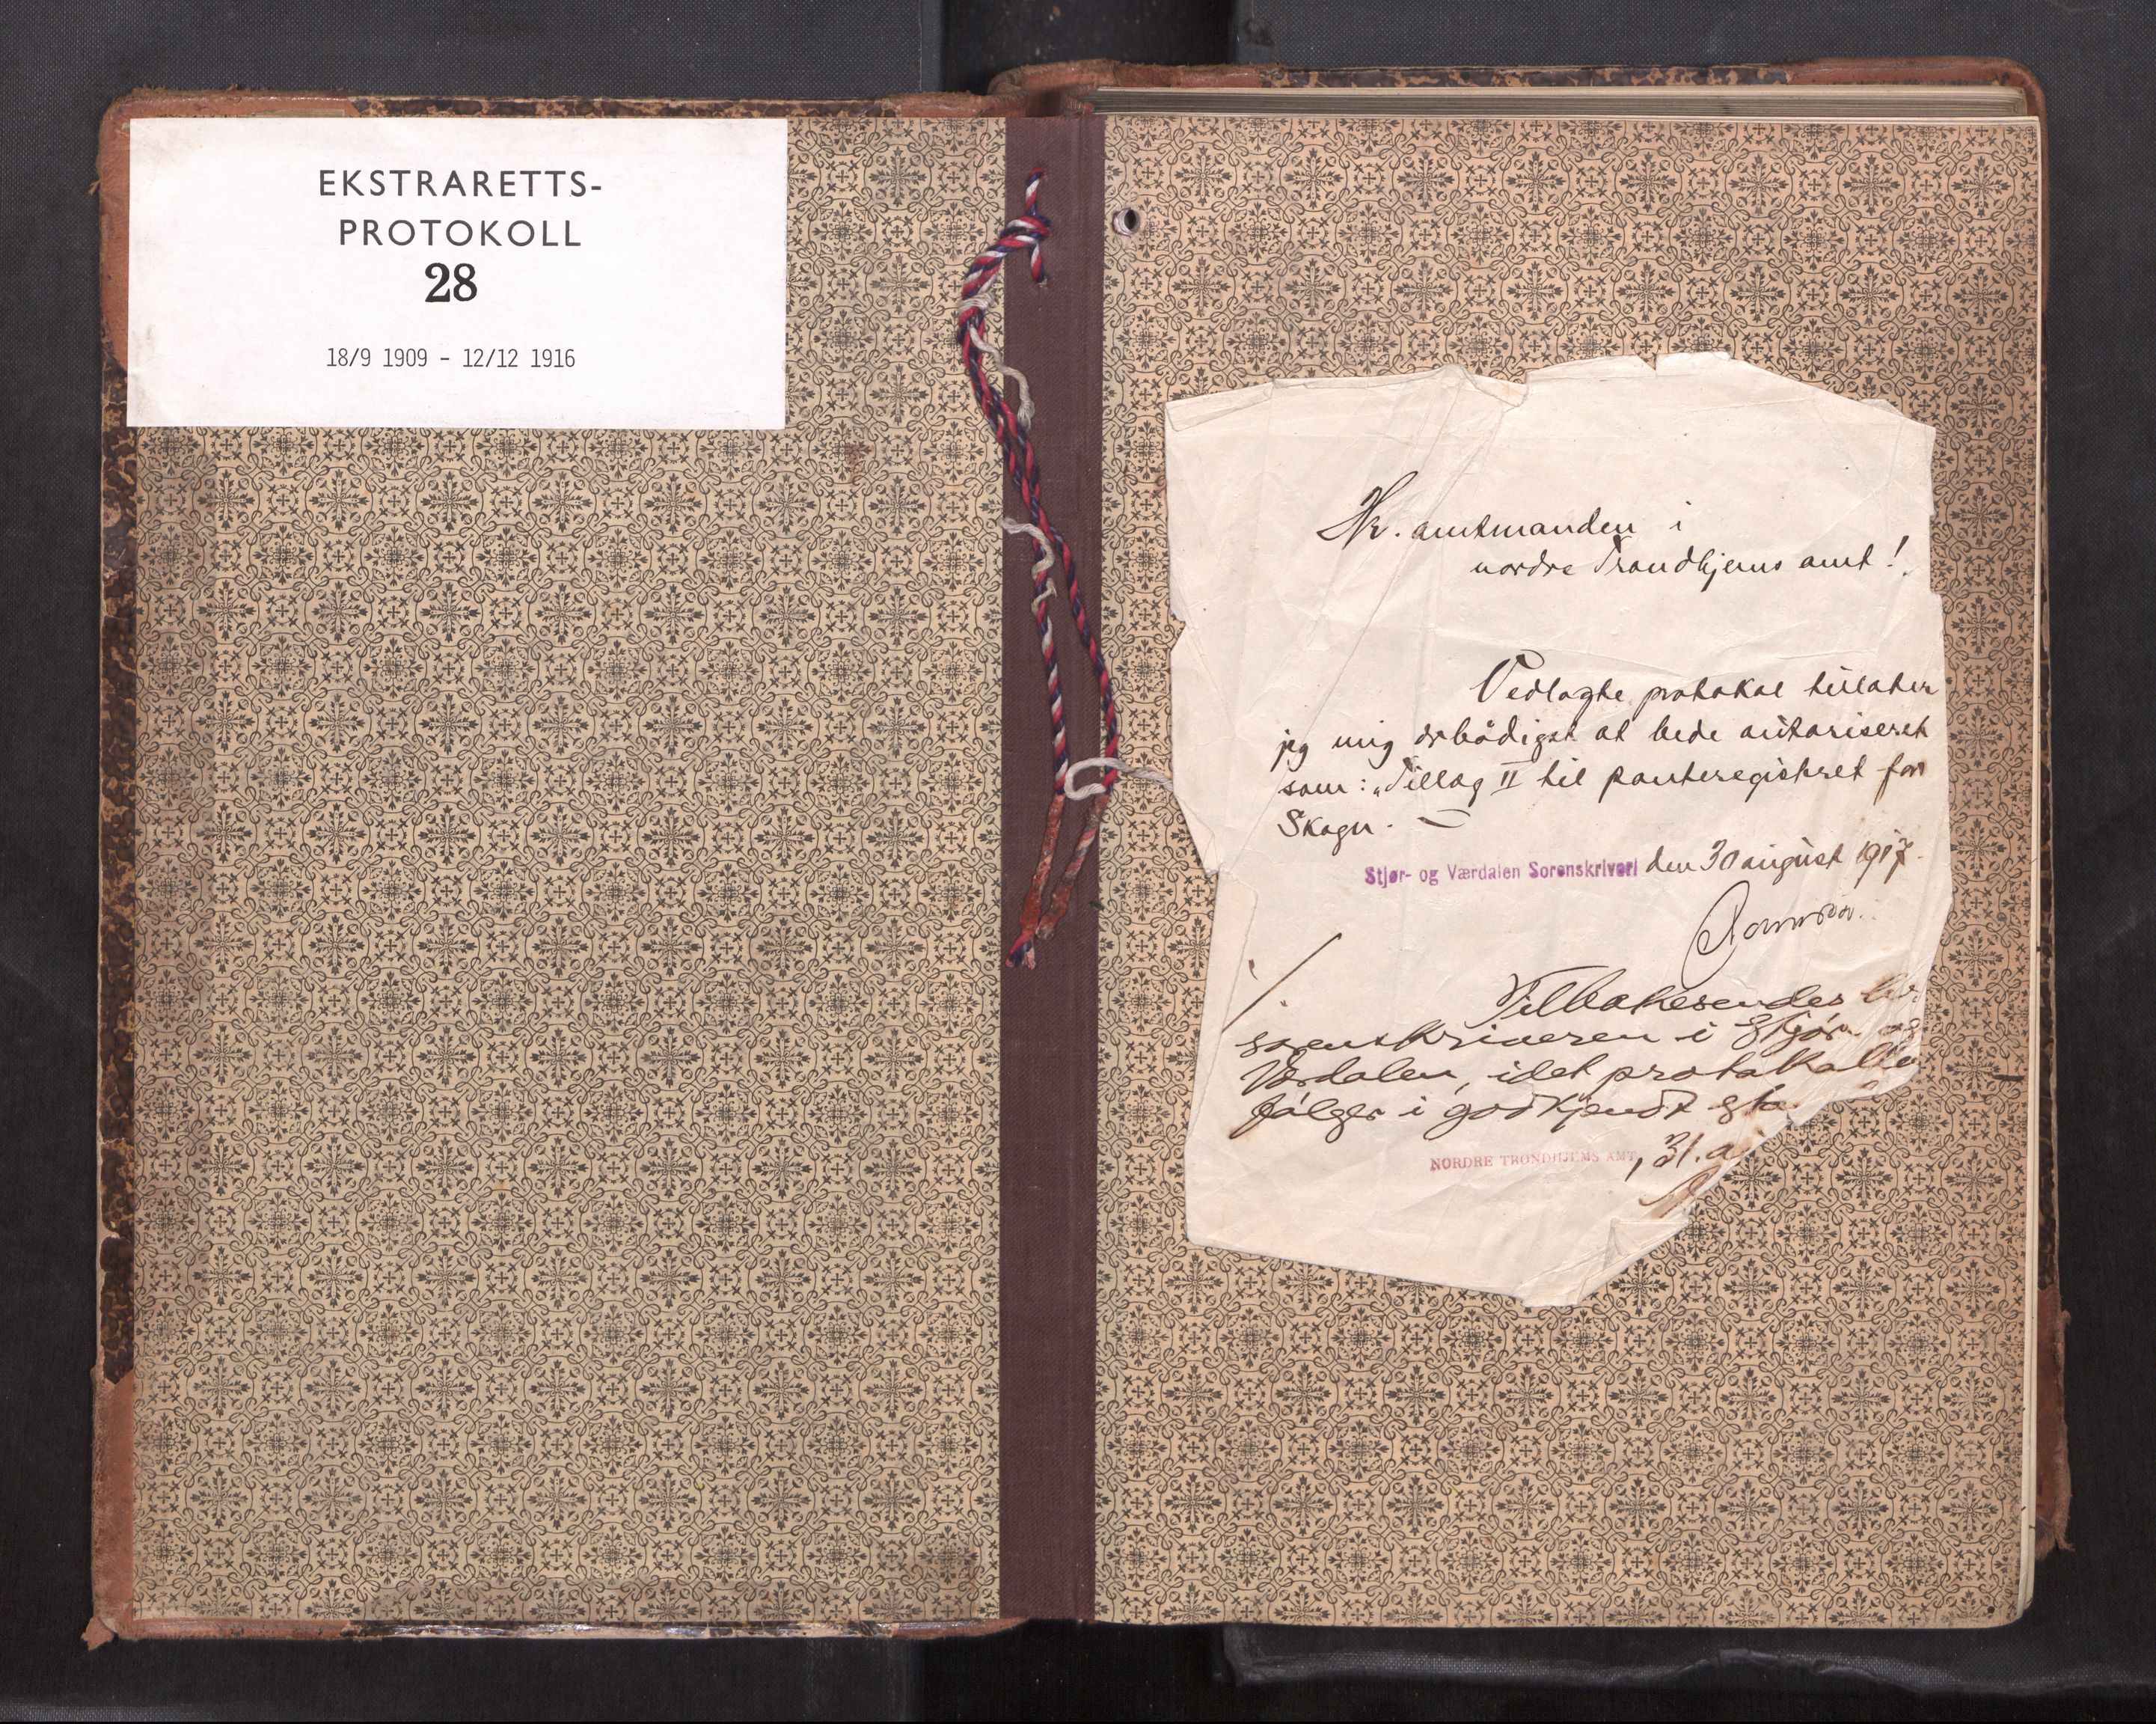 EKSTRARETTS-
PROTOKOLL
28
18/9 1909 - 12/12 1916
Hr. amtmanden i
nordre Trondhjems amt!
Vedlagte protokol tillater
jeg mig ærbødigst at bede autoriseret
som: „Tillæg II til panteregistret for
Skogn. —
Stjør- og Værdalen Sorenskriveri den 30 august 1917.
./.
Tilbakesendes hr.
sorenskriveren i Stjør- og
Værdalen, idet protokolle
følger i godkjendt sta
NORDRE TRONDHJEMS AMT, 31. a